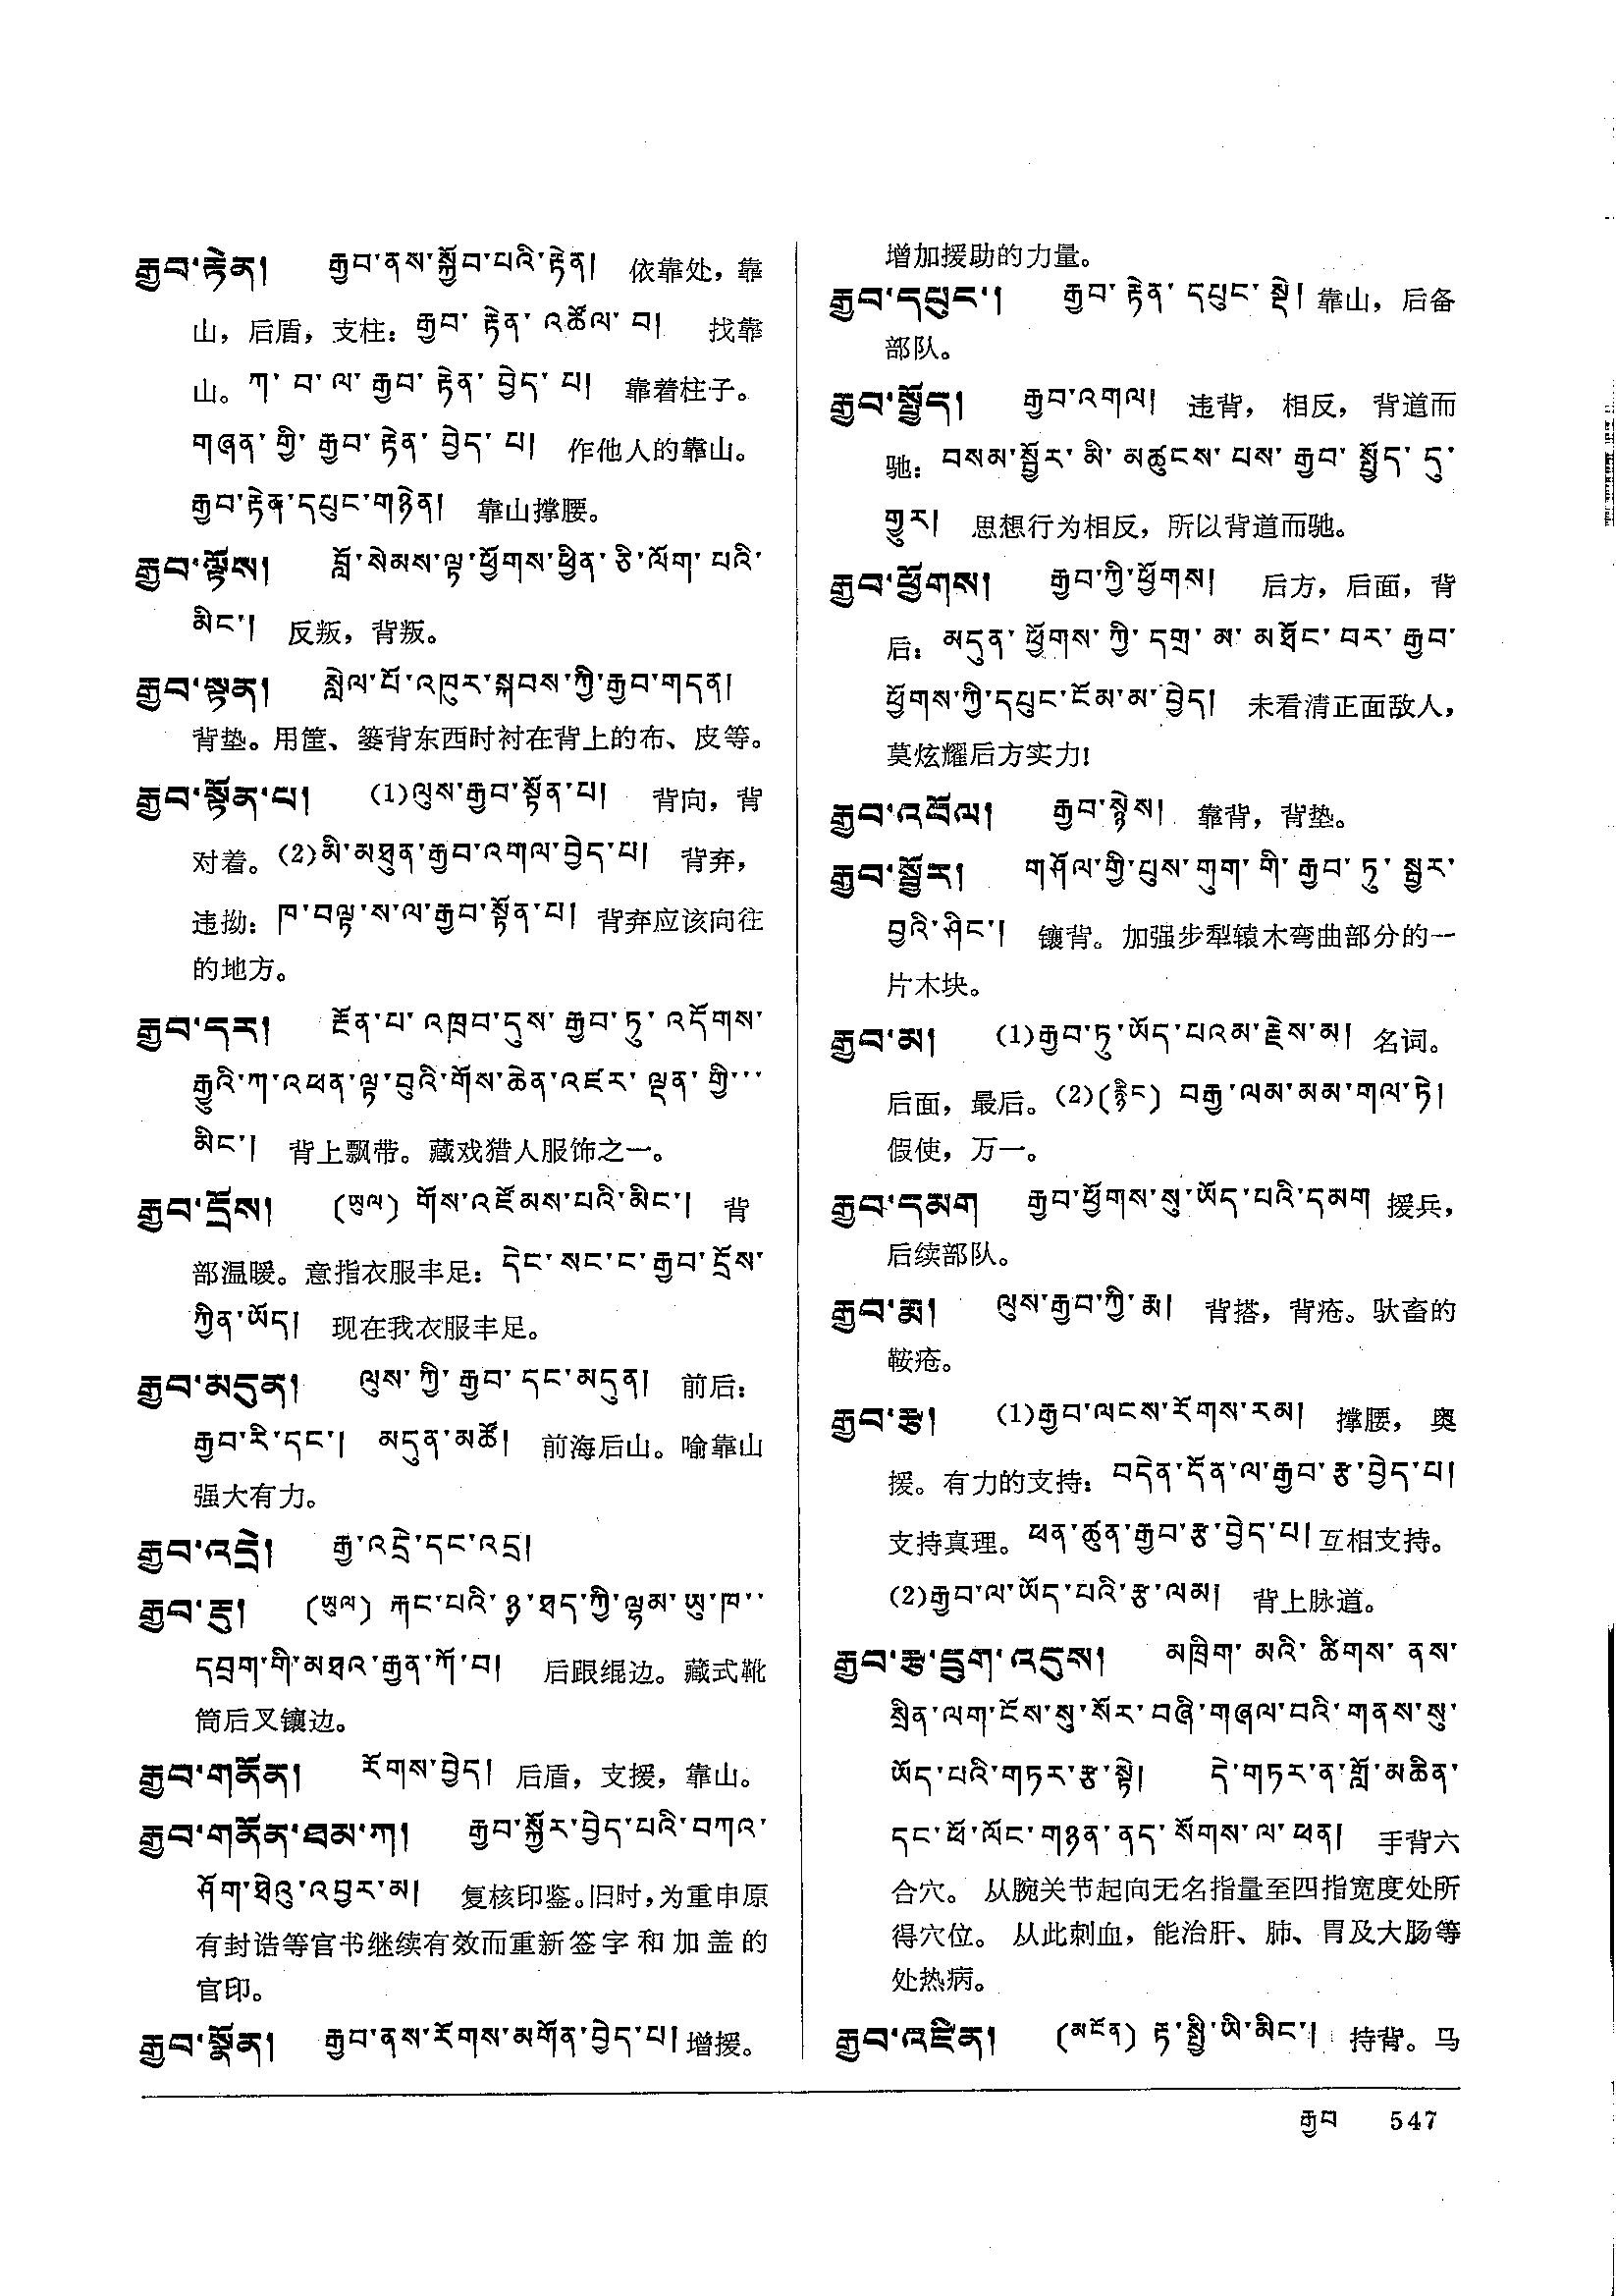 རྒྱབ་རྟེན། རྒྱབ་ནས་སྐྱོབ་པའི་རྟེན། 依靠处，靠
山，后盾，支柱：རྒྱབ་རྟེན་འཚོལ་བ། 找靠
山。ཀ་བ་ལ་རྒྱབ་རྟེན་བྱེད་པ། 靠着柱子。
གཞན་གྱི་རྒྱབ་རྟེན་བྱེད་པ། 作他人的靠山。
རྒྱབ་རྟེན་དཔུང་གཉེན། 靠山撑腰。
རྒྱབ་ལྟོས། བློ་སེམས་ལྟ་ཕྱོགས་ཕྱིན་ཅི་ལོག་པའི་
མིང་། 反叛，背叛。
རྒྱབ་སྟན། སླེལ་པོ་འཁུར་སྐབས་ཀྱི་རྒྱབ་གདན།
背垫。用筐、篓背东西时衬在背上的布、皮等。
རྒྱབ་སྟོན་པ། (1)ལུས་རྒྱབ་སྟོན་པ། 背向，背
对着。(2)མི་མཐུན་རྒྱབ་འགལ་བྱེད་པ། 背弃，
违拗：ཁ་བལྟ་ས་ལ་རྒྱབ་སྟོན་པ། 背弃应该向往
的地方。
རྒྱབ་དར། རྔོན་པ་འཁྲབ་དུས་རྒྱབ་ཏུ་འདོགས་
རྒྱུའི་ཀ་འཕན་ལྟ་བུའི་གོས་ཆེན་འཇར་ལྡན་གྱི་…
མིང་། 背上飘带。藏戏猎人服饰之一。
རྒྱབ་དྲོས། (ཡུལ) གོས་འཛོམས་པའི་མིང་། 背
部温暖。意指衣服丰足：དེང་སང་ང་རྒྱབ་དྲོས་
ཀྱིན་ཡོད། 现在我衣服丰足。
རྒྱབ་མདུན། ལུས་ཀྱི་རྒྱབ་དང་མདུན། 前后：
རྒྱབ་རི་དང་། མདུན་མཚོ། 前海后山。喻靠山
强大有力。
རྒྱབ་འདྲེ། རྒྱ་འདྲེ་དང་འདྲ།
རྒྱབ་རྡུ། (ཡུལ) རྐང་པའི་ཉ་ཐད་ཀྱི་ལྷམ་ཡུ་ཁ་
དབྲག་གི་མཐའ་རྒྱན་ཀོ་བ། 后跟绲边。藏式靴
筒后叉镶边。
རྒྱབ་གནོན། རོགས་བྱེད། 后盾，支援，靠山。
རྒྱབ་གནོན་ཐམ་ཀ། རྒྱབ་སྐྱོར་བྱེད་པའི་བཀའ་
ཤོག་ཐེའུ་འབྱར་མ། 复核印鉴。旧时，为重申原
有封诰等官书继续有效而重新签字和加盖的
官印。
རྒྱབ་སྣོན། རྒྱབ་ནས་རོགས་མགོན་བྱེད་པ། 增援。
增加援助的力量。
རྒྱབ་དཔུང་། རྒྱབ་རྟེན་དཔུང་སྡེ། 靠山，后备
部队。
རྒྱབ་སྤྱོད། རྒྱབ་འགལ། 违背，相反，背道而
驰：བསམ་སྦྱོར་མི་མཚུངས་པས་རྒྱབ་སྤྱོད་དུ་
གྱུར། 思想行为相反，所以背道而驰。
རྒྱབ་ཕྱོགས། རྒྱབ་ཀྱི་ཕྱོགས། 后方，后面，背
后：མདུན་ཕྱོགས་ཀྱི་དགྲ་མ་མཐོང་བར་རྒྱབ་
ཕྱོགས་ཀྱི་དཔུང་ངོམ་མ་བྱེད། 未看清正面敌人，
莫炫耀后方实力！
རྒྱབ་འབོལ། རྒྱབ་སྙེས། 靠背，背垫。
རྒྱབ་སྦྱོར། གཤོལ་གྱི་པུས་གུག་གི་རྒྱབ་ཏུ་སྦྱར་
བྱའི་ཤིང་། 镶背。加强步犁辕木弯曲部分的一
片木块。
རྒྱབ་མ། (1)རྒྱབ་ཏུ་ཡོད་པའམ་རྗེས་མ། 名词。
后面，最后。(2)(རྙིང) བརྒྱ་ལམ་མམ་གལ་ཏེ།
假使，万一。
རྒྱབ་དམག རྒྱབ་ཕྱོགས་སུ་ཡོད་པའི་དམག 援兵，
后续部队。
རྒྱབ་རྨ། ལུས་རྒྱབ་ཀྱི་རྨ། 背搭，背疮。驮畜的
鞍疮。
རྒྱབ་རྩ། (1)རྒྱབ་ལངས་རོགས་རམ། 撑腰，奥
援。有力的支持：བདེན་དོན་ལ་རྒྱབ་རྩ་བྱེད་པ།
支持真理。ཕན་ཚུན་རྒྱབ་རྩ་བྱེད་པ། 互相支持。
(2)རྒྱབ་ལ་ཡོད་པའི་རྩ་ལམ། 背上脉道。
རྒྱབ་རྩ་དྲུག་འདུས། མཁྲིག་མའི་ཚིགས་ནས་
སྲིན་ལག་ངོས་སུ་སོར་བཞི་གཞལ་བའི་གནས་སུ་
ཡོད་པའི་གཏར་རྩ་སྟེ། དེ་གཏར་ན་གློ་མཆིན་
དང་ཕོ་ལོང་གཉན་ནད་སོགས་ལ་ཕན། 手背六
合穴。从腕关节起向无名指量至四指宽度处所
得穴位。从此刺血，能治肝、肺、胃及大肠等
处热病。
རྒྱབ་འཛིན། (མངོན) རྟ་སྤྱི་ཡི་མིང་། 持背。马
རྒྱབ 547